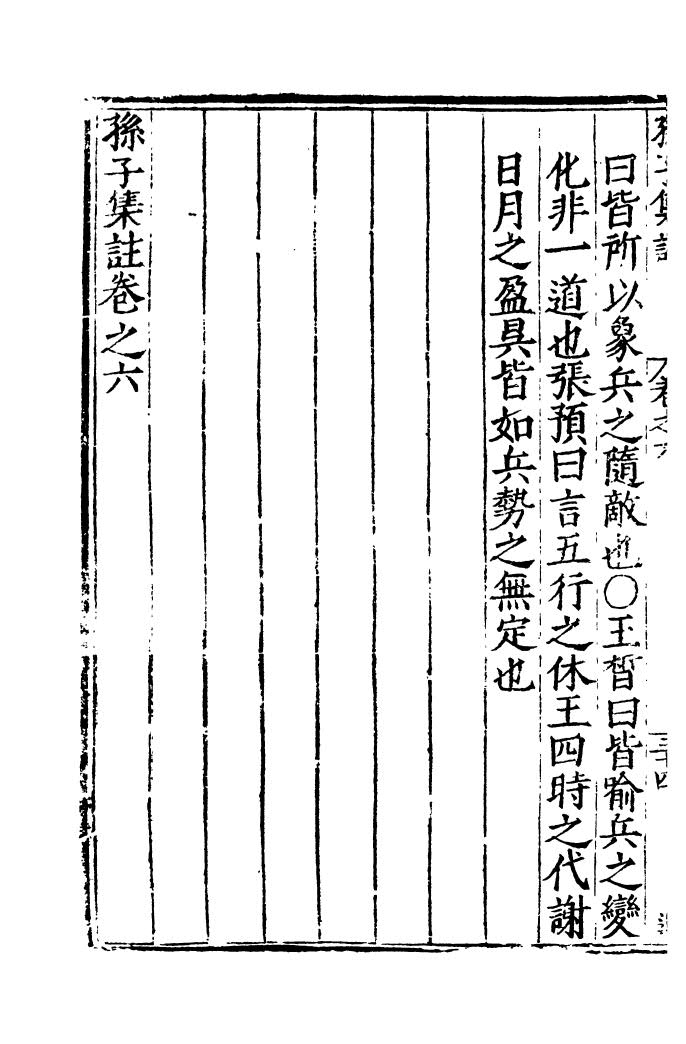 孫子集註
卷之六
三十四
曰皆所以象兵之隨敵也〇王晳曰皆喻兵之變
化非一道也張預曰言五行之休王四時之代謝
日月之盈昃皆如兵勢之無定也
孫子集註卷之六